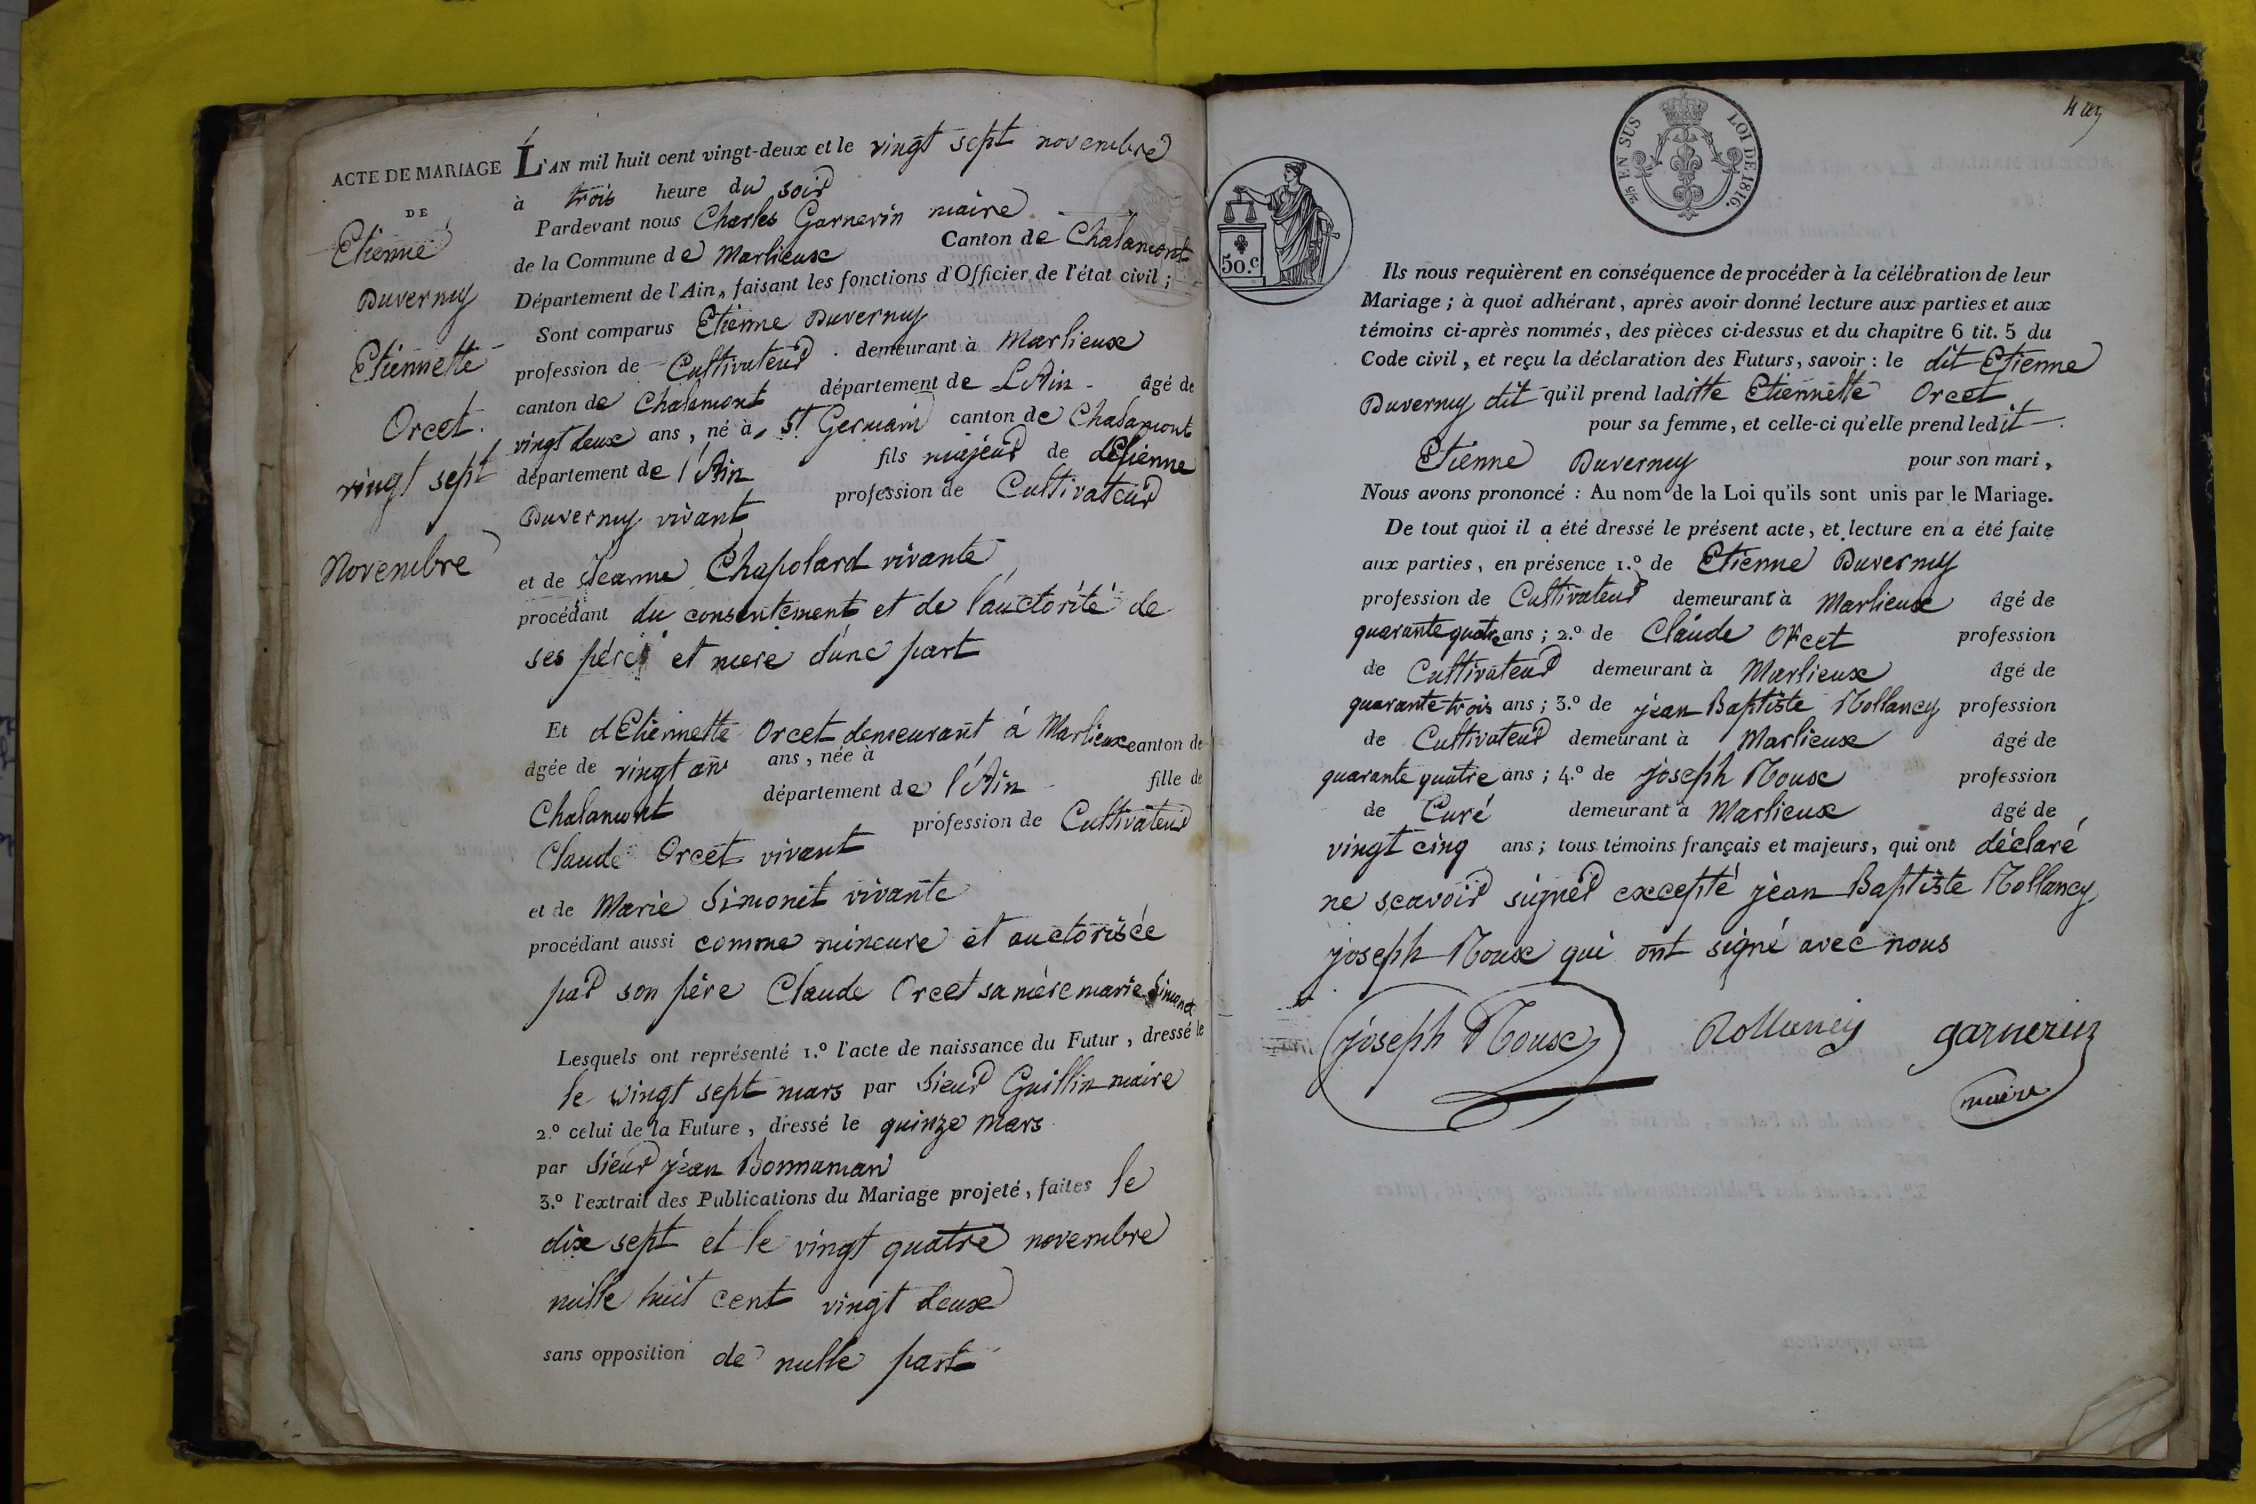 ACTE DE MARIAGE
DE
Etienne
Duverney
Etiennette
Orcet.
vingt sept
Novembre
L'AN mil huit cent vingt-deux et le vingt sept novembre
à trois heure du soir
Pardevant nous Charles Garnerin maire
de la Commune de Marlieux Canton de Chalamont
Département de l'Ain, faisant les fonctions d'Officier de l'état civil ;
Sont comparus Etienne Duverney
profession de Cultivateur demeurant à Marlieux
canton de Chalamont département de L'Ain âgé de
vingt deux ans, né à St Germain canton de Chalamont
département de l'Ain fils majeur de dEtienne
Duverney vivant profession de Cultivateur
et de Jeanne Chapolard vivante
procédant du consentement et de l'auctorité de
ses pére et mere d'une part
Et dEtiennette Orcet demeurant á Marlieux canton de
âgée de vingt ans ans, née à
Chalamont département de l'Ain fille de
Claude Orcet vivant profession de Cultivateur
et de Marie Simonet vivante
procédant aussi comme mineure et auctorisée
par son pére Claude Orcet sa mére marie Simonet
Lesquels ont représenté 1.º l'acte de naissance du Futur, dressé le
le vingt sept mars par Sieur Guillin maire
2.º celui de la Future, dressé le quinze mars
par Sieur jéan Bonnaman
3.º l'extrait des Publications du Mariage projeté, faites le
dix sept et le vingt quatre novembre
mille huit cent vingt deux
sans opposition de nulle part
50.c
2/5 EN SUS
LOI DE 1816.
Ils nous requièrent en conséquence de procéder à la célébration de leur
Mariage ; à quoi adhérant, après avoir donné lecture aux parties et aux
témoins ci-après nommés, des pièces ci-dessus et du chapitre 6 tit. 5 du
Code civil, et reçu la déclaration des Futurs, savoir : le dit Etienne
Duverney dit qu'il prend laditte Etiennette Orcet
pour sa femme, et celle-ci qu'elle prend ledit
Etienne Duverney pour son mari,
Nous avons prononcé : Au nom de la Loi qu'ils sont unis par le Mariage.
De tout quoi il a été dressé le présent acte, et lecture en a été faite
aux parties, en présence 1.º de Etienne Duverney
profession de Cultivateur demeurant à Marlieux âgé de
quarante quatre ans ; 2.º de Claude Orcet profession
de Cultivateur demeurant à Marlieux âgé de
quarante trois ans ; 3.º de jéan Baptiste Rollancy profession
de Cultivateur demeurant à Marlieux âgé de
quarante quatre ans ; 4.º de joseph Roux profession
de Curé demeurant à Marlieux âgé de
vingt cinq ans ; tous témoins français et majeurs, qui ont déclaré
ne scavoir signer excepté jéan Baptiste Rollancy
joseph Roux qui ont signé avec nous
joseph Roux Rollancy garnerin
maire